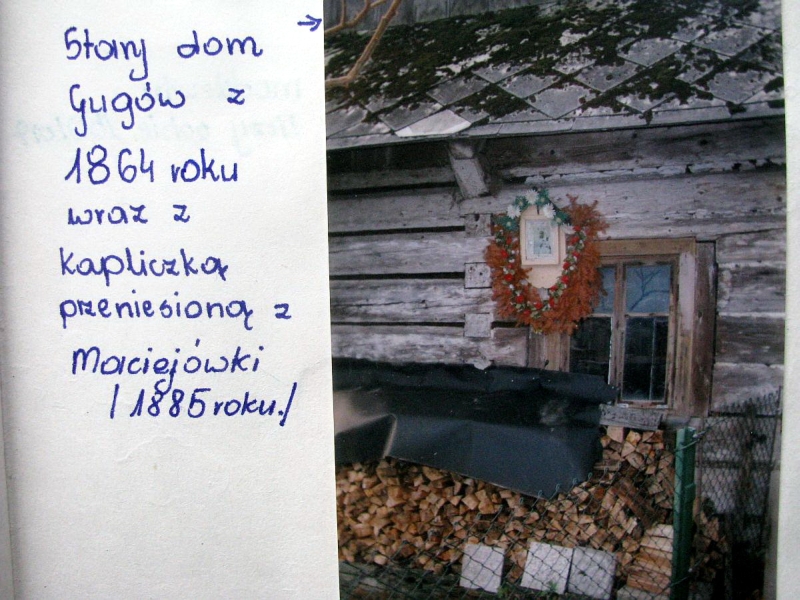 Stary dom
Gugów z
1864 roku
wraz z
kapliczką
przeniesioną z
Maciejówki
/1885 roku./